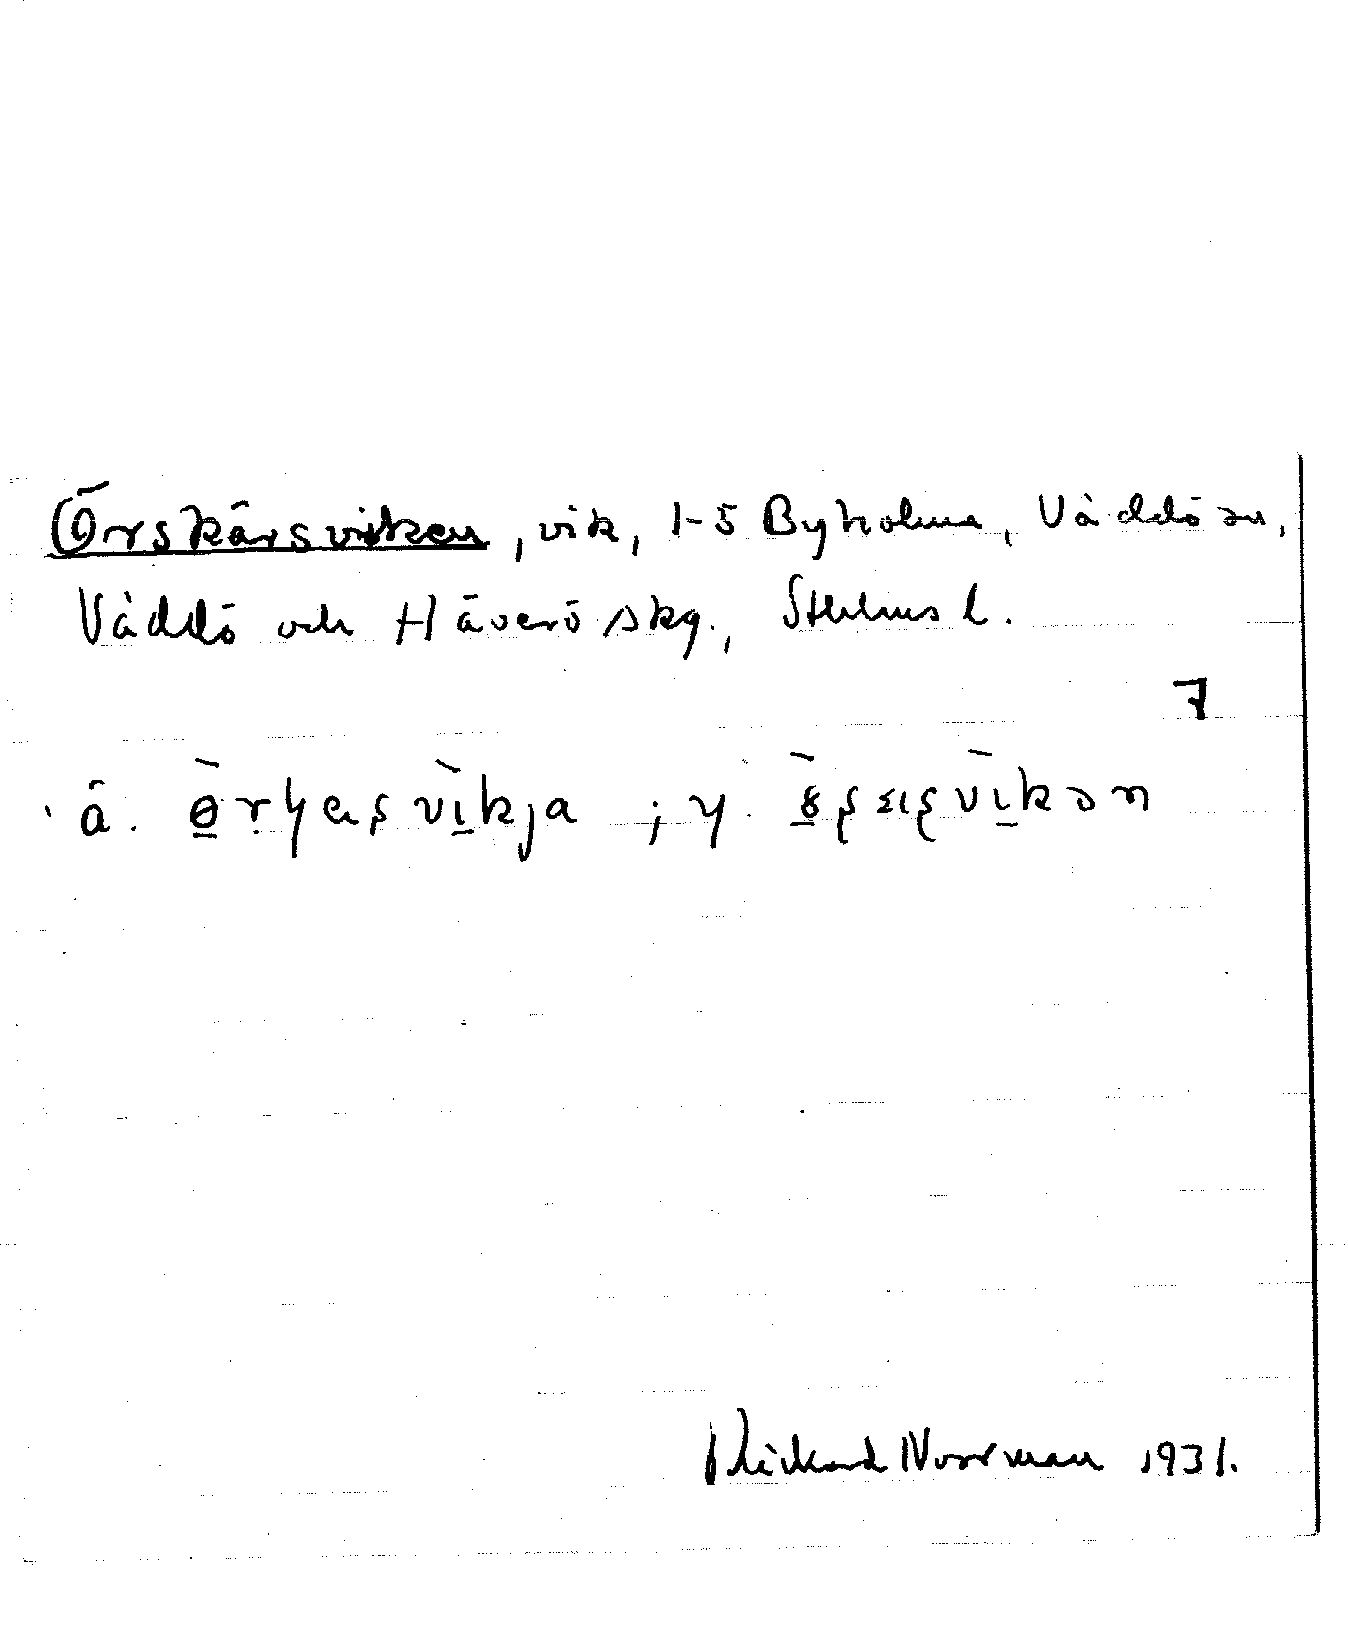 Örskärsviken, vik, 1-5 Byholma, Väddö sn,
Väddö och Häverö skg., Sthlms l.
7
ä. ; y.
Rickard Norrman 1931.